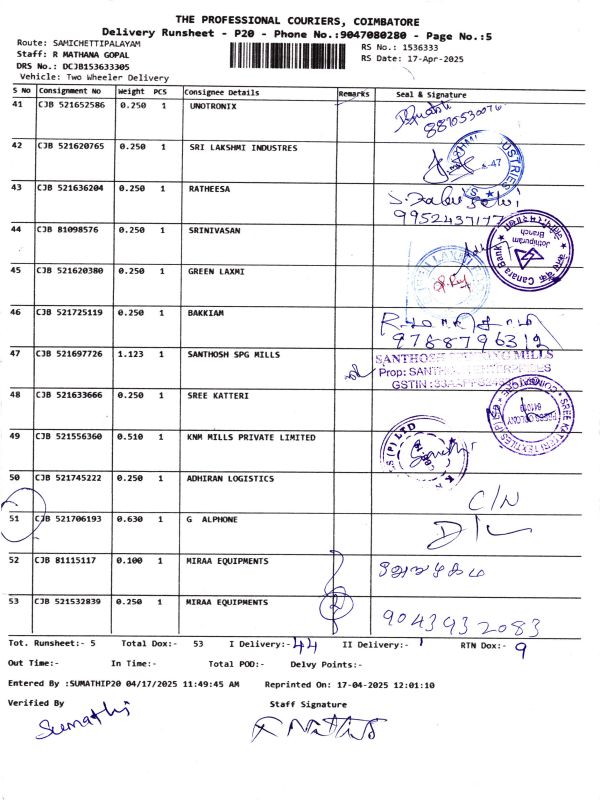 THE PROFESSIONAL COURIERS, COIMBATORE
Delivery Runsheet - P20 - Phone No.:9047080280 - Page No.:5
Route: SAMICHETTIPALAYAM
RS No.: 1536333
Staff: R MATHANA GOPAL
RS Date: 17-Apr-2025
DRS No.: DCJB153633305
Vehicle: Two Wheeler Delivery
S No Consignment No Weight PCS Consignee Details Remarks Seal & Signature
41 CJB 521652586 0.250 1 UNOTRONIX
42 CJB 521620765 0.250 1 SRI LAKSHMI INDUSTRES
43 CJB 521636204 0.250 1 RATHEESA
44 CJB 81098576 0.250 1 SRINIVASAN
Canara Bank
Jothipuram
Branch
45 CJB 521620380 0.250 1 GREEN LAXMI
46 CJB 521725119 0.250 1 BAKKIAM
9788796312
47 CJB 521697726 1.123 1 SANTHOSH SPG MILLS
SANTHOSH SPINNING MILLS
48 CJB 521633666 0.250 1 SREE KATTERI
SREE KATTERI TEXTILES
49 CJB 521556360 0.510 1 KNM MILLS PRIVATE LIMITED
50 CJB 521745222 0.250 1 ADHIRAN LOGISTICS
C/N
51 CJB 521706193 0.630 1 G ALPHONE
D/L
52 CJB 81115117 0.100 1 MIRAA EQUIPMENTS
53 CJB 521532839 0.250 1 MIRAA EQUIPMENTS 2
9043932083
Tot. Runsheet:- 5 Total Dox:- 53 I Delivery:- 44 II Delivery:- RTN Dox:- 9
Out Time:- In Time:- Total POD:- Delvy Points:-
Entered By :SUMATHIP20 04/17/2025 11:49:45 AM Reprinted On: 17-04-2025 12:01:10
Verified By Staff Signature
Sumathi